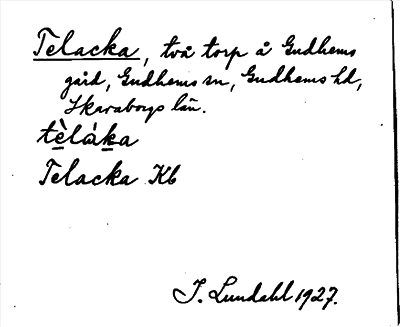 Telacka, två torp å Gudhems
gård, Gudhems sn, Gudhems hd,
Skaraborgs län.
tèlàka
Telacka Kb
I. Lundahl 1927.